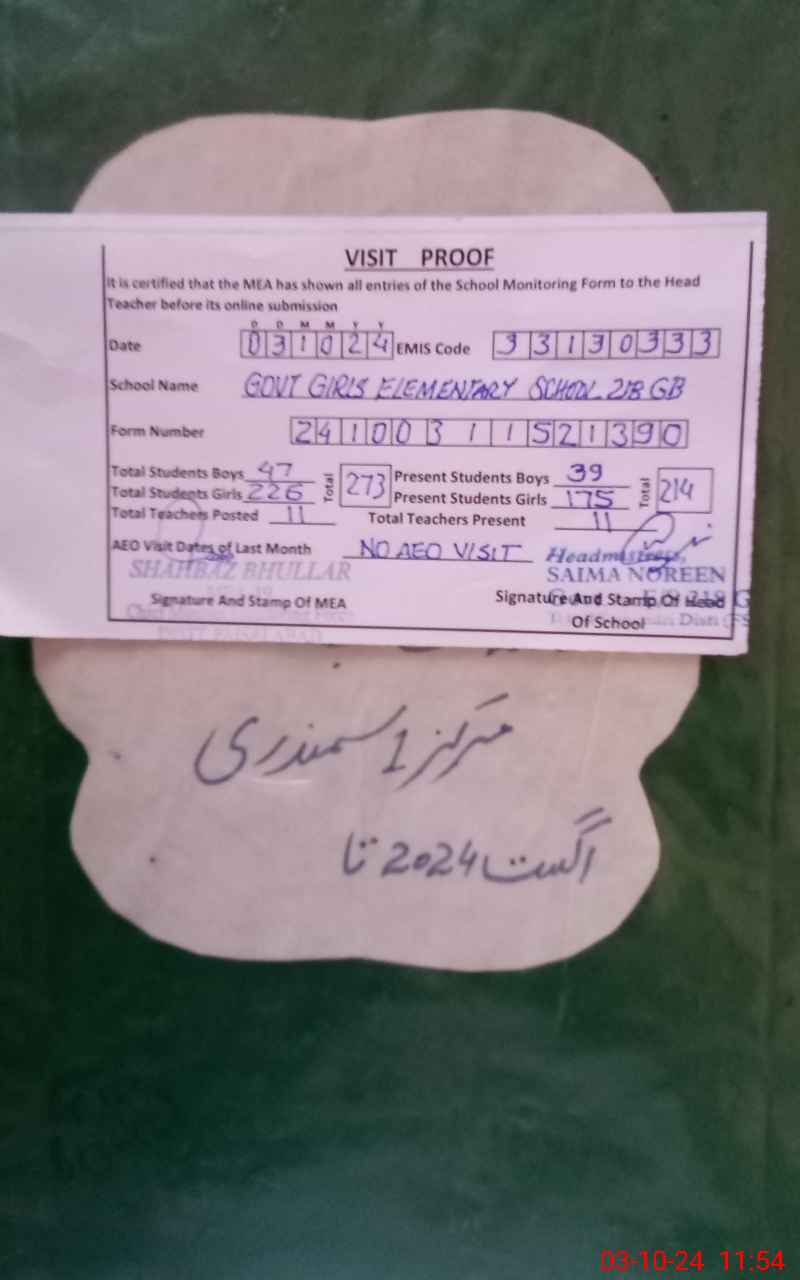 VISIT PROOF
It is certified that the MEA has shown all entries of the School Monitoring Form to the Head
Teacher before its online submission
D D M M Y Y
Date 031024 EMIS Code 33130333
School Name GOVT GIRLS ELEMENTARY SCHOOL 218 GB
Form Number 2410031 1521390
Total Students Boys 47 Total 273 Present Students Boys 39 Total 214
Total Students Girls 226 Present Students Girls 175
Total Teachers Posted 11 Total Teachers Present 11
AEO Visit Dates of Last Month NO AEO VISIT
Headmistress,
SHAHBAZ BHULLAR SAIMA NOREEN
Signature And Stamp Of MEA Signature And Stamp Of Head
Of School
مرکز 1 سمندری
اگست 2024 تا
03-10-24 11:54